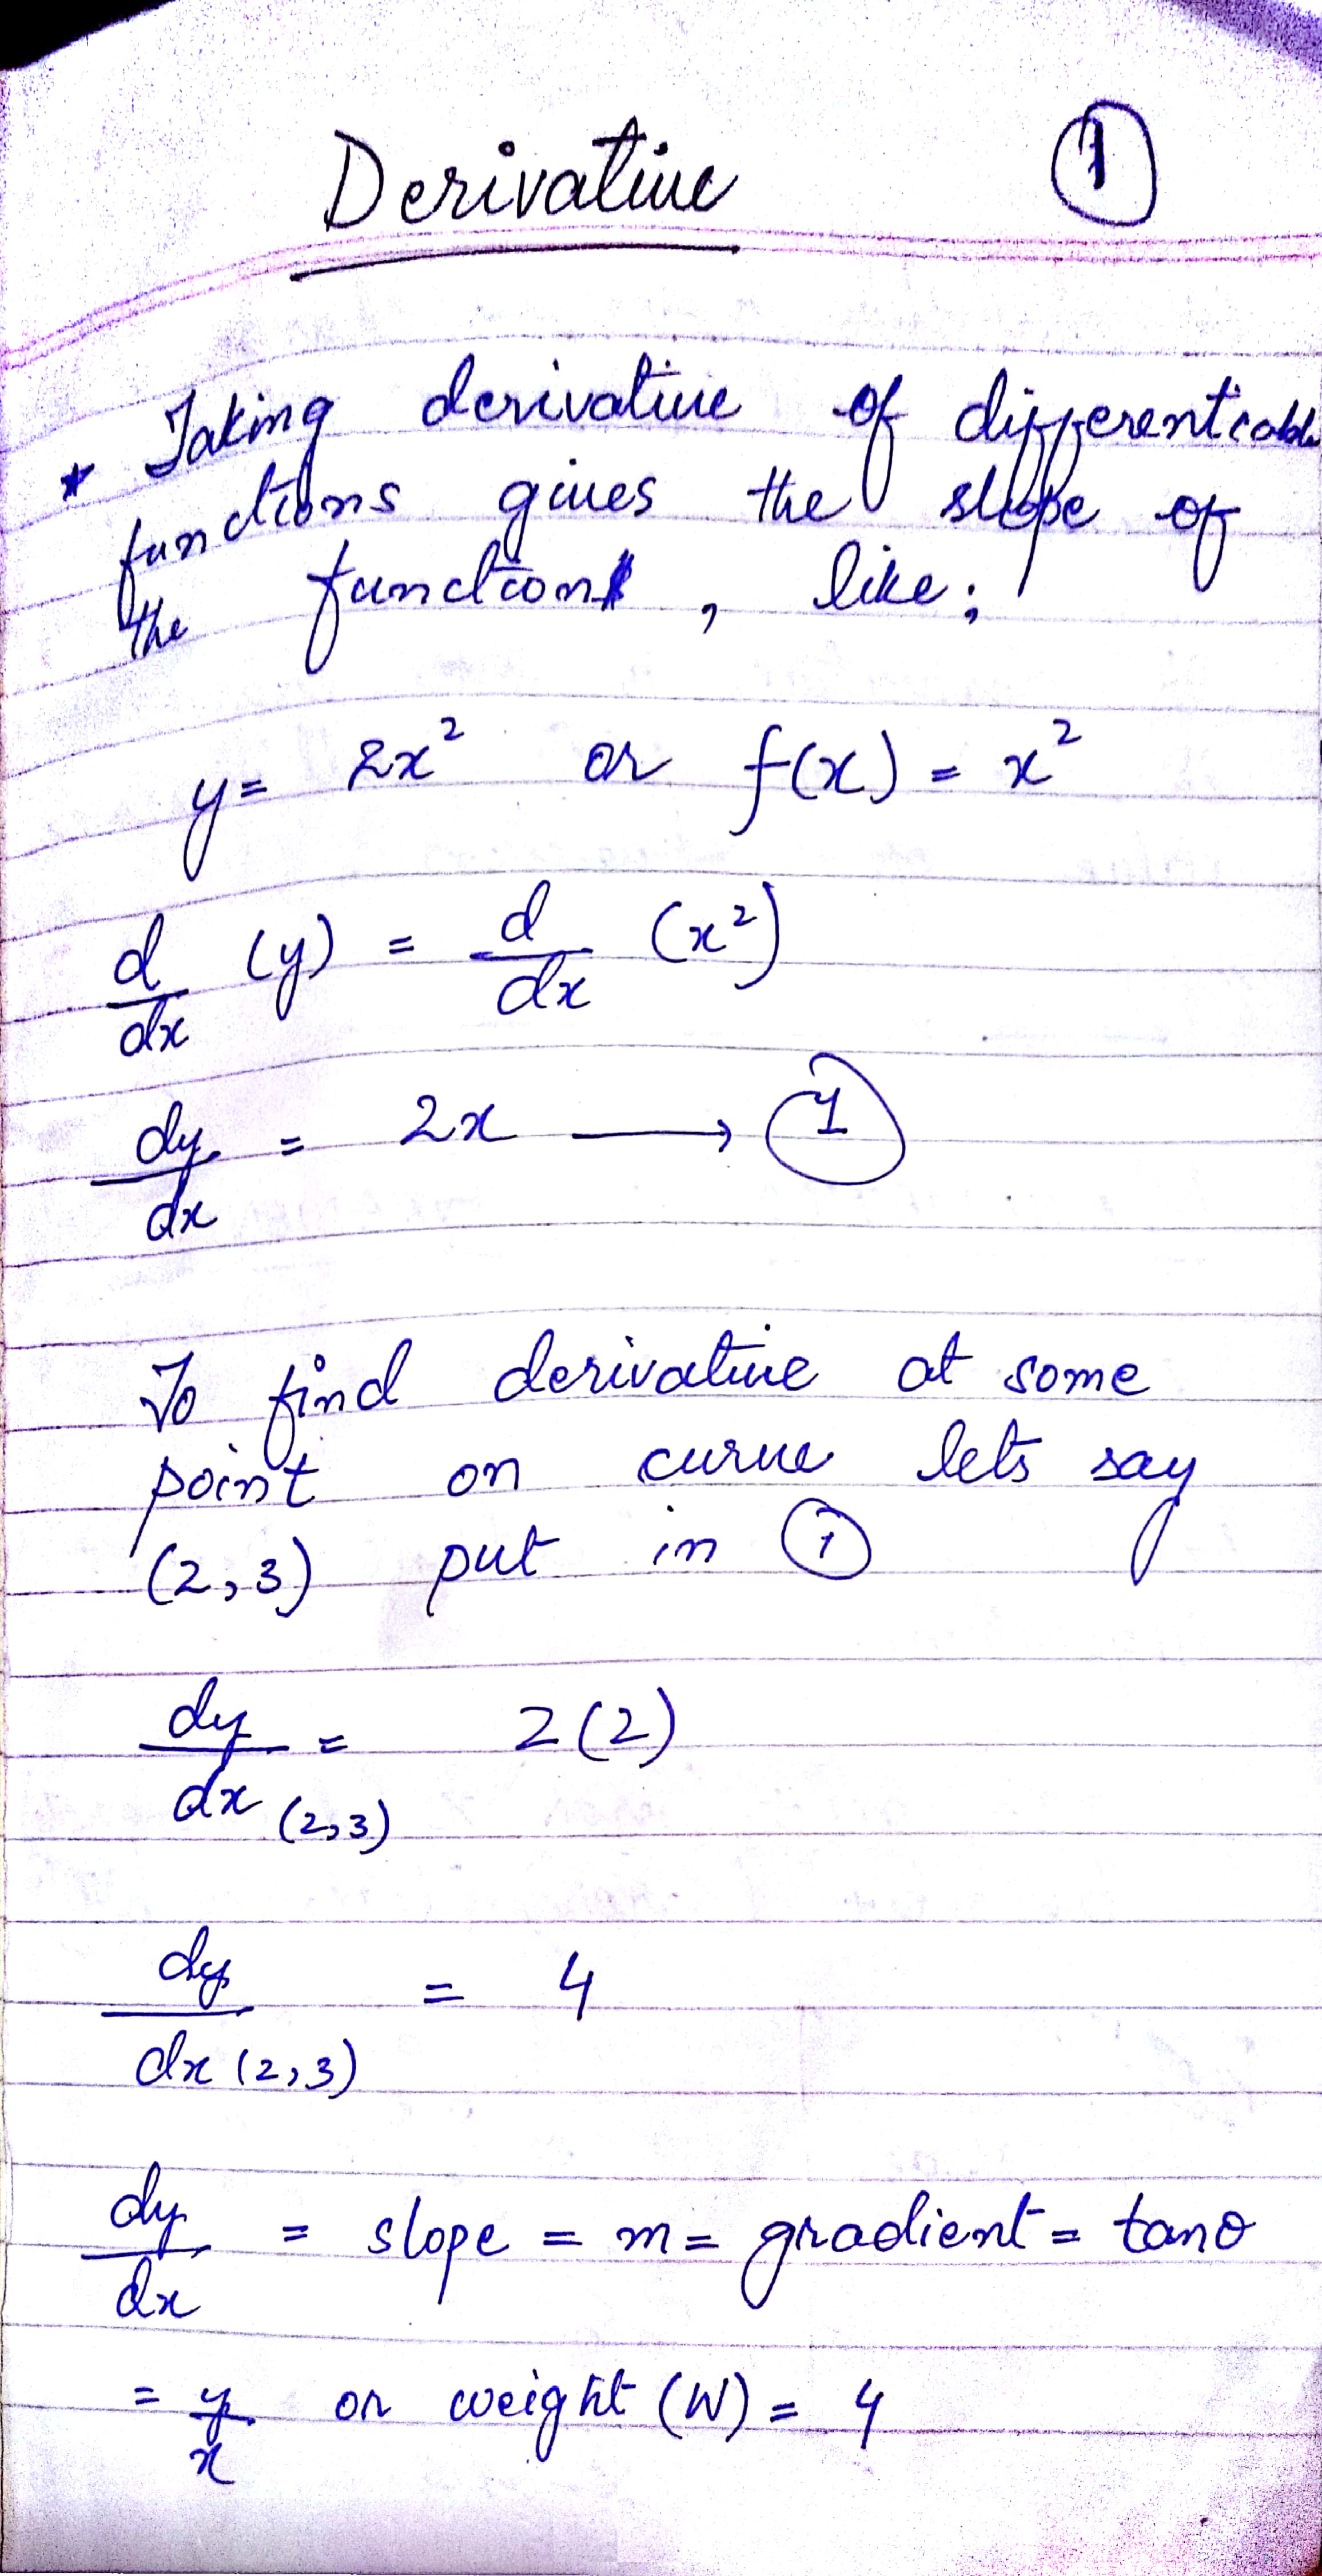 Derivative ①
* Taking derivative of differentiable
functions gives the slope of
the function, like;
y = 2x² or f(x) = x²
d/dx (y) = d/dx (x²)
dy/dx = 2x → ①
To find derivative at some
point on curve lets say
(2,3) put in ①
dy/dx (2,3) = 2(2)
dy/dx (2,3) = 4
dy/dx = slope = m = gradient = tanθ
= y/x or weight (W) = 4